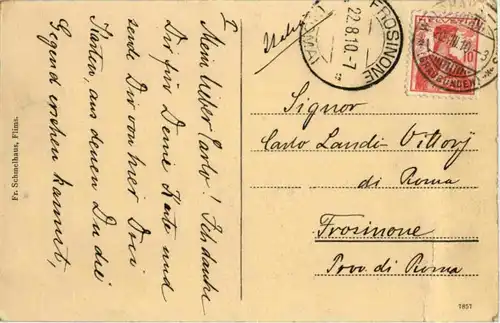 I
Mein lieber Carlo! Ich danke
Dir für Deine Karte und
sende Dir von hier Drei
Karten, aus denen Du die
Gegend ersehen kannst,
Fr. Schmelhaus, Flims.
Italien
FROSINONE
22.8.10.-7
HELVETIA
10
(GRAUBÜNDEN)
Signor
Carlo Landi-Vittorj
di Roma
Frosinone
Prov. di Roma
1851